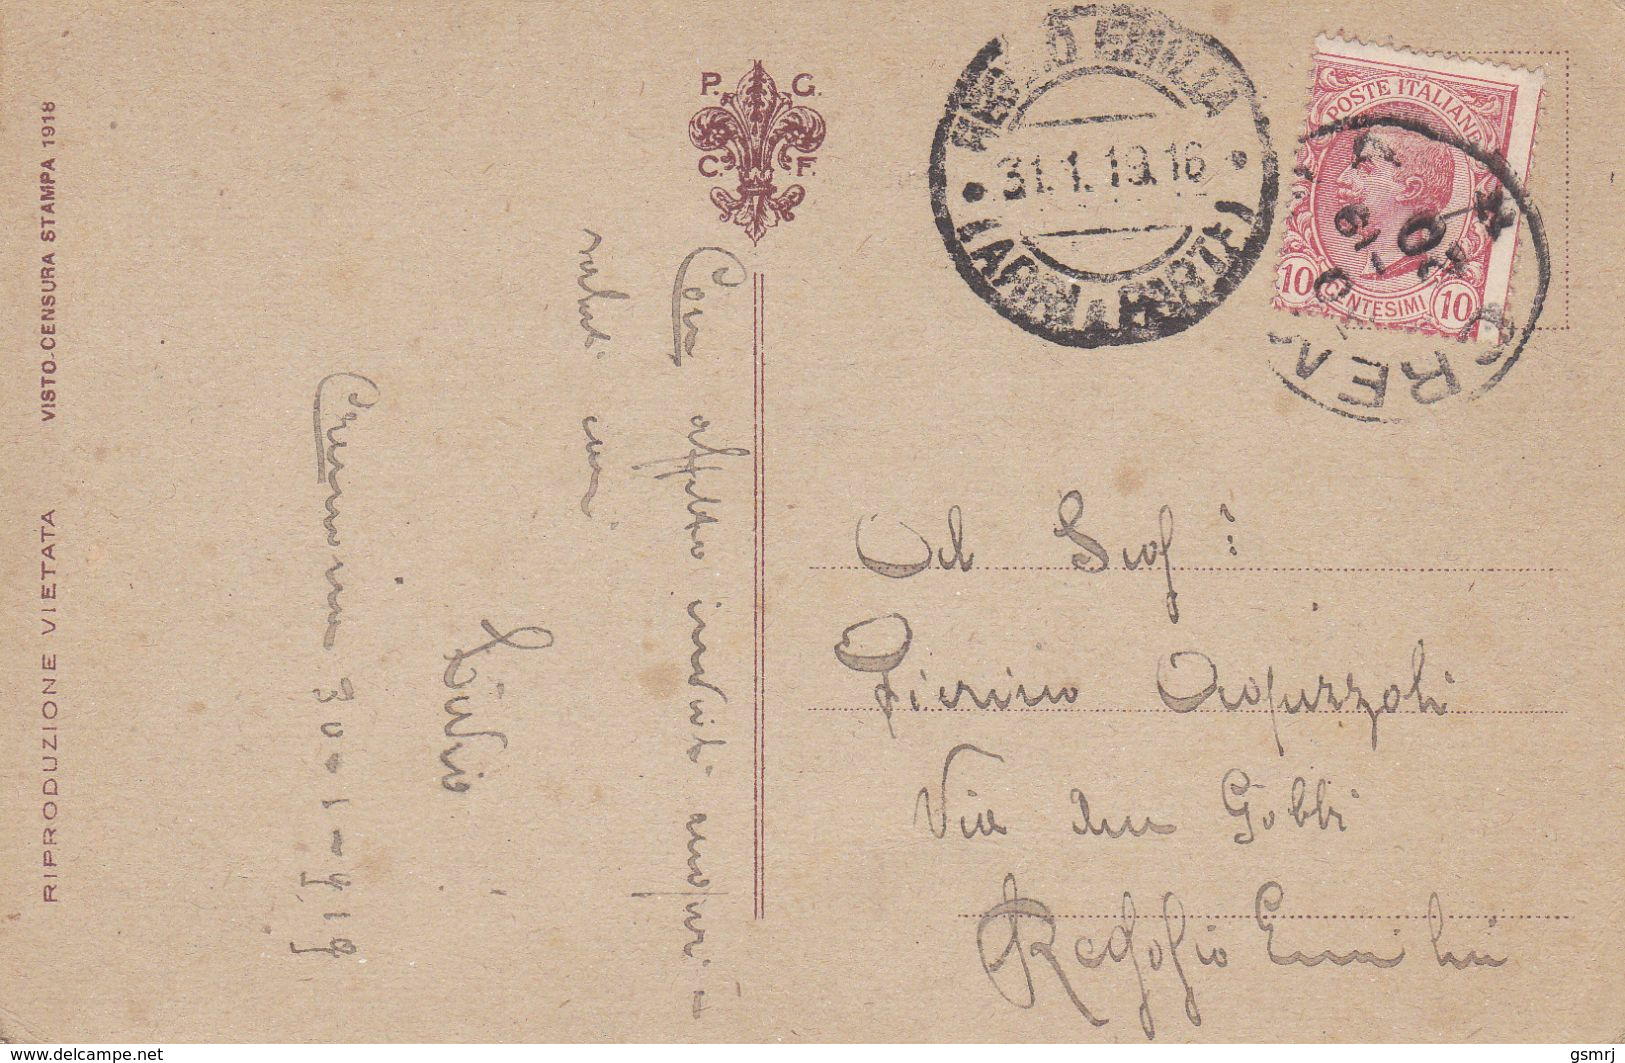 VISTO-CENSURA STAMPA 1918
RIPRODUZIONE VIETATA
P. G.
C. F.
REGGIO EMILIA
31.1.19.16
(ARRIVI E PARTENZE)
POSTE ITALIANE
10 CENTESIMI 10
CREMA
Con affetto inviati auguri -
saluti cari
Livio
Cremona 30-1-919
Al Sig:
Pierino
Via Gobbi
Reggio Emilia
www.delcampe.net
gsmrj